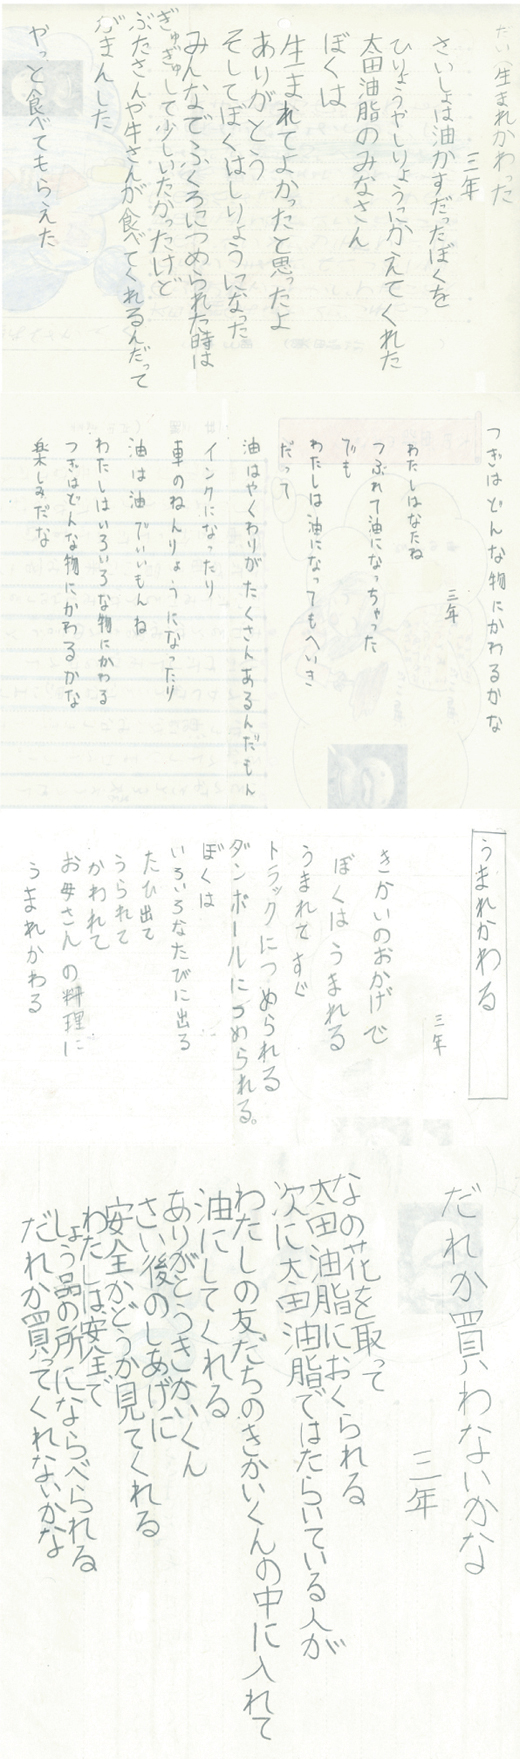 だい 生まれかわった
三年
さいしょは油かすだったぼくを
ひりょうやしりょうにかえてくれた
太田油脂のみなさん
ぼくは
生まれてよかったと思ったよ
ありがとう
そしてぼくはしりょうになった
みんなでふくろにつめられた時は
ぎゅぎゅして少しいたかったけど
ぶたさんや牛さんが食べてくれるんだって
がまんした
やっと食べてもらえた
つぎはどんな物にかわるかな
三年
わたしはなたね
つぶれて油になっちゃった
でも
わたしは油になってもへいき
だって
油はやくわりがたくさんあるんだもん
インクになったり
車のねんりょうになったり
油は油でいいもんね
わたしはいろいろな物にかわる
つぎはどんな物にかわるかな
楽しみだな
うまれかわる
三年
きかいのおかげで
ぼくはうまれる
うまれてすぐ
トラックにつめられる
ダンボールにつめられる。
ぼくは
いろいろなたびに出る
たび出て
うられて
かわれて
お母さんの料理に
うまれかわる
だれか買わないかな
三年
なの花を取って
太田油脂におくられる
次に太田油脂ではたらいている人が
わたしの友だちのきかいくんの中に入れて
油にしてくれる
ありがとうきかいくん
さい後のしあげに
安全かどうか見てくれる
わたしは安全で
しょう品の所にならべられる
だれか買ってくれないかな